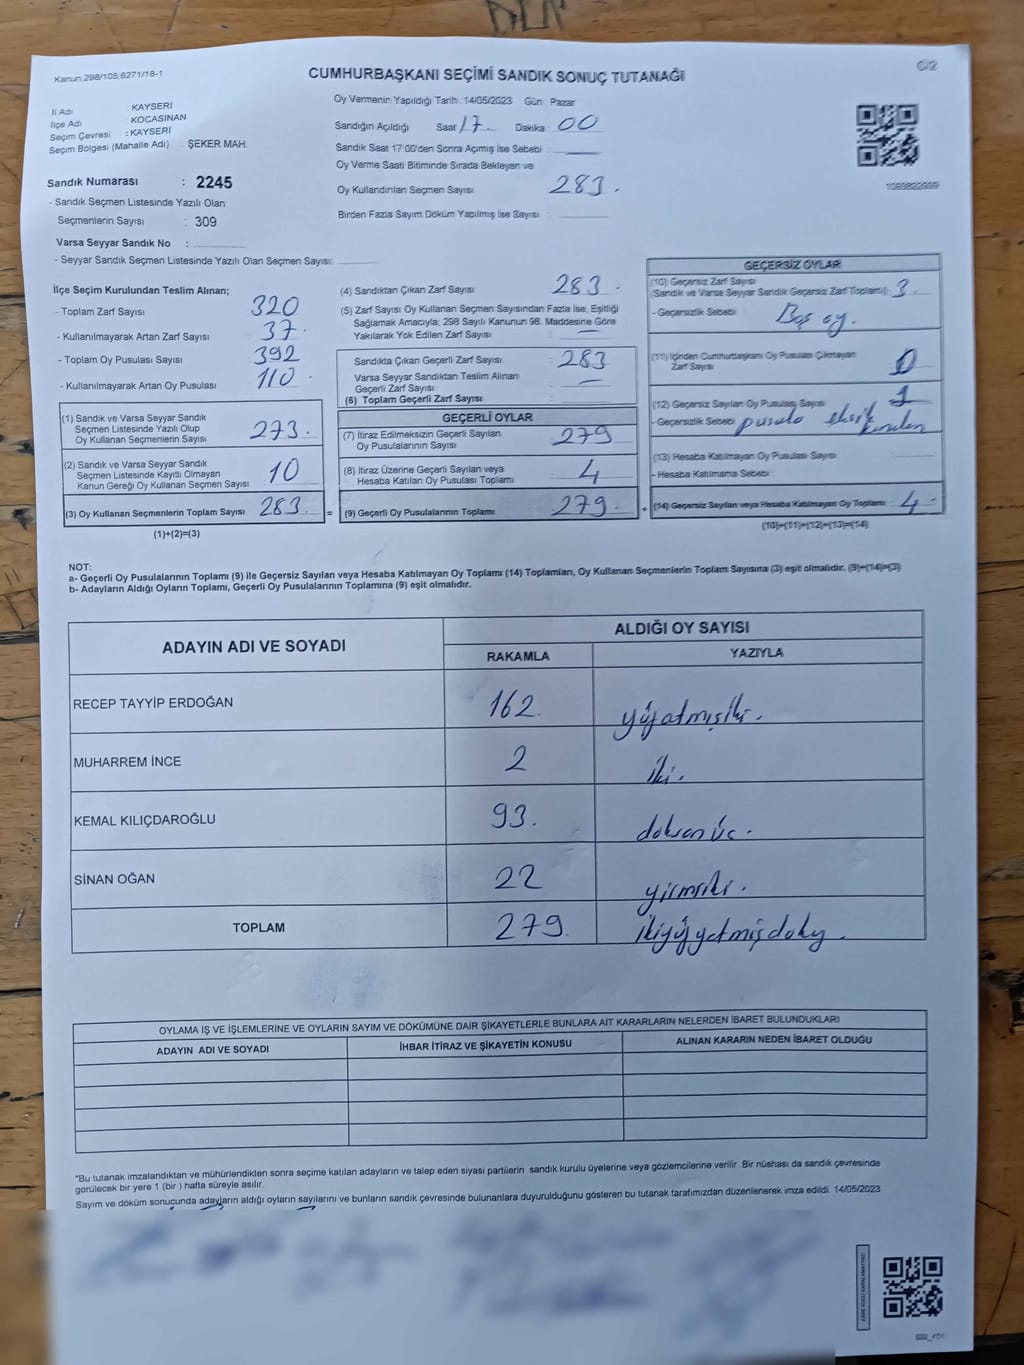 Kanun:298/105;6271/18-1
CUMHURBAŞKANI SEÇİMİ SANDIK SONUÇ TUTANAĞI
C/2
İl Adı : KAYSERİ
İlçe Adı : KOCASİNAN
Seçim Çevresi : KAYSERİ
Seçim Bölgesi (Mahalle Adı) : ŞEKER MAH.
Sandık Numarası : 2245
- Sandık Seçmen Listesinde Yazılı Olan
Seçmenlerin Sayısı : 309
Varsa Seyyar Sandık No :
- Seyyar Sandık Seçmen Listesinde Yazılı Olan Seçmen Sayısı:
Oy Vermenin Yapıldığı Tarih: 14/05/2023 Gün: Pazar
Sandığın Açıldığı Saat 17 Dakika: 00
Sandık Saat 17:00'den Sonra Açımış İse Sebebi :
Oy Verme Saati Bitiminde Sırada Bekleyen ve
Oy Kullandırılan Seçmen Sayısı: 283.
Birden Fazla Sayım Döküm Yapılmış İse Sayısı:
İlçe Seçim Kurulundan Teslim Alınan;
- Toplam Zarf Sayısı : 320
- Kullanılmayarak Artan Zarf Sayısı : 37.
- Toplam Oy Pusulası Sayısı : 392
- Kullanılmayarak Artan Oy Pusulası : 110.
(1) Sandık ve Varsa Seyyar Sandık
Seçmen Listesinde Yazılı Olup
Oy Kullanan Seçmenlerin Sayısı : 273.
(2) Sandık ve Varsa Seyyar Sandık
Seçmen Listesinde Kayıtlı Olmayan
Kanun Gereği Oy Kullanan Seçmen Sayısı : 10
(3) Oy Kullanan Seçmenlerin Toplam Sayısı : 283.
(1)+(2)=(3)
(4) Sandıktan Çıkan Zarf Sayısı : 283.
(5) Zarf Sayısı Oy Kullanan Seçmen Sayısından Fazla İse, Eşitliği
Sağlamak Amacıyla; 298 Sayılı Kanunun 98. Maddesine Göre
Yakılarak Yok Edilen Zarf Sayısı : —
Sandıkta Çıkan Geçerli Zarf Sayısı : 283
Varsa Seyyar Sandıktan Teslim Alınan
Geçerli Zarf Sayısı : —
(6) Toplam Geçerli Zarf Sayısı :
GEÇERLİ OYLAR
(7) İtiraz Edilmeksizin Geçerli Sayılan
Oy Pusulalarının Sayısı : 279
(8) İtiraz Üzerine Geçerli Sayılan veya
Hesaba Katılan Oy Pusulası Toplamı : 4
= (9) Geçerli Oy Pusulalarının Toplamı : 279.
GEÇERSİZ OYLAR
(10) Geçersiz Zarf Sayısı
(Sandık ve Varsa Seyyar Sandık Geçersiz Zarf Toplamı) : 3.
- Geçersizlik Sebebi : Boş oy.
(11) İçinden Cumhurbaşkanı Oy Pusulası Çıkmayan
Zarf Sayısı : 0
(12) Geçersiz Sayılan Oy Pusulası Sayısı : 1
- Geçersizlik Sebebi: pusula
(13) Hesaba Katılmayan Oy Pusulası Sayısı :
- Hesaba Katılmama Sebebi :
+ (14) Geçersiz Sayılan veya Hesaba Katılmayan Oy Toplamı : 4
(10)+(11)+(12)+(13)=(14)
NOT:
a- Geçerli Oy Pusulalarının Toplamı (9) ile Geçersiz Sayılan veya Hesaba Katılmayan Oy Toplamı (14) Toplamları, Oy Kullanan Seçmenlerin Toplam Sayısına (3) eşit olmalıdır. (9)+(14)=(3)
b- Adayların Aldığı Oyların Toplamı, Geçerli Oy Pusulalarının Toplamına (9) eşit olmalıdır.
ADAYIN ADI VE SOYADI
ALDIĞI OY SAYISI
RAKAMLA YAZIYLA
RECEP TAYYİP ERDOĞAN 162. yüzatmışiki.
MUHARREM İNCE 2 iki.
KEMAL KILIÇDAROĞLU 93. doksanüç.
SİNAN OĞAN 22 yirmiiki.
TOPLAM 279.
OYLAMA İŞ VE İŞLEMLERİNE VE OYLARIN SAYIM VE DÖKÜMÜNE DAİR ŞİKAYETLERLE BUNLARA AİT KARARLARIN NELERDEN İBARET BULUNDUKLARI
ADAYIN ADI VE SOYADI İHBAR İTİRAZ VE ŞİKAYETİN KONUSU ALINAN KARARIN NEDEN İBARET OLDUĞU
*Bu tutanak imzalandıktan ve mühürlendikten sonra seçime katılan adayların ve talep eden siyasi partilerin sandık kurulu üyelerine veya gözlemcilerine verilir. Bir nüshası da sandık çevresinde
görülecek bir yere 1 (bir) hafta süreyle asılır.
Sayım ve döküm sonucunda adayların aldığı oyların sayılarını ve bunların sandık çevresinde bulunanlara duyurulduğunu gösteren bu tutanak tarafımızdan düzenlenerek imza edildi. 14/05/2023